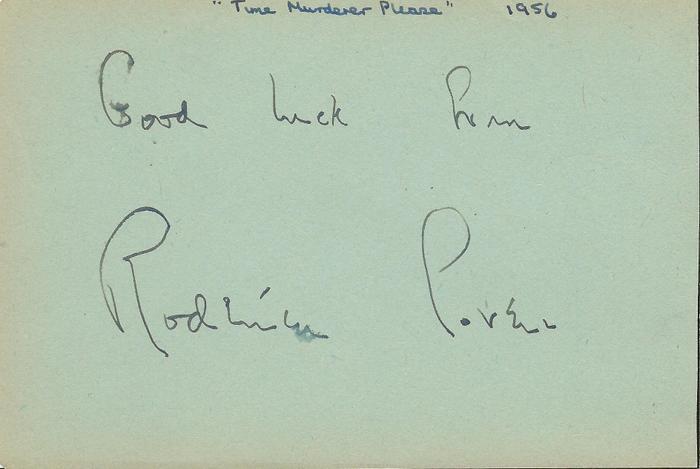 "Time Murderer Please" 1956
Good luck from
Roderick Lovell